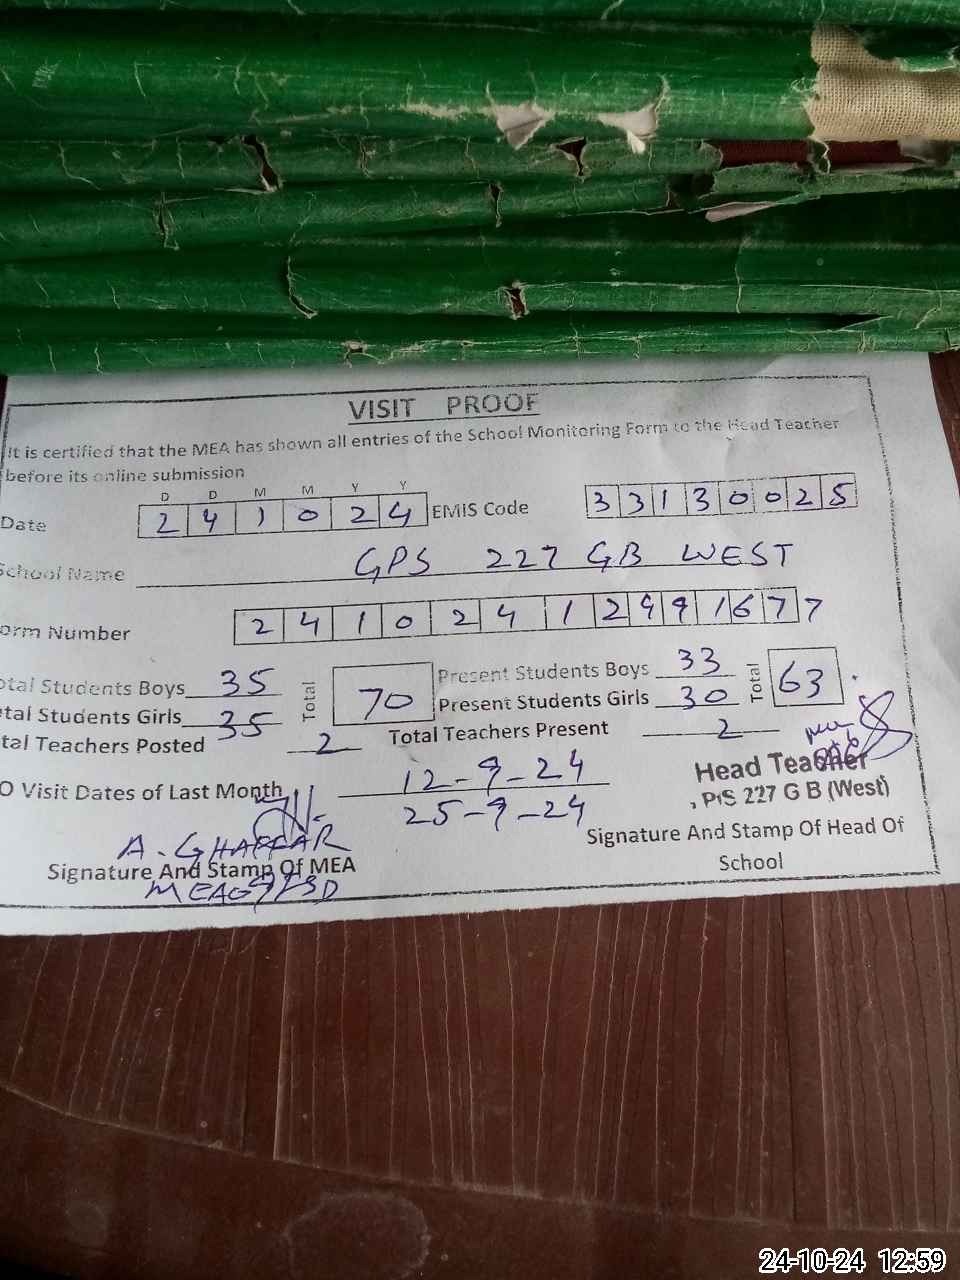 VISIT PROOF
It is certified that the MEA has shown all entries of the School Monitoring Form to the Head Teacher
before its online submission
D D M M Y Y
Date 2 4 1 0 2 4 EMIS Code 3 3 1 3 0 0 2 5
School Name GPS 227 GB WEST
orm Number 2 4 1 0 2 4 1 2 9 9 1 6 7 7
otal Students Boys 35 Total 70 Present Students Boys 33 Total 63
tal Students Girls 35 Present Students Girls 30
tal Teachers Posted 2 Total Teachers Present 2
O Visit Dates of Last Month 12-9-24
25-9-24
Head Teacher
, PS 227 G B (West)
A. GHAFFAR
Signature And Stamp Of MEA
Signature And Stamp Of Head Of
School
24-10-24 12:59